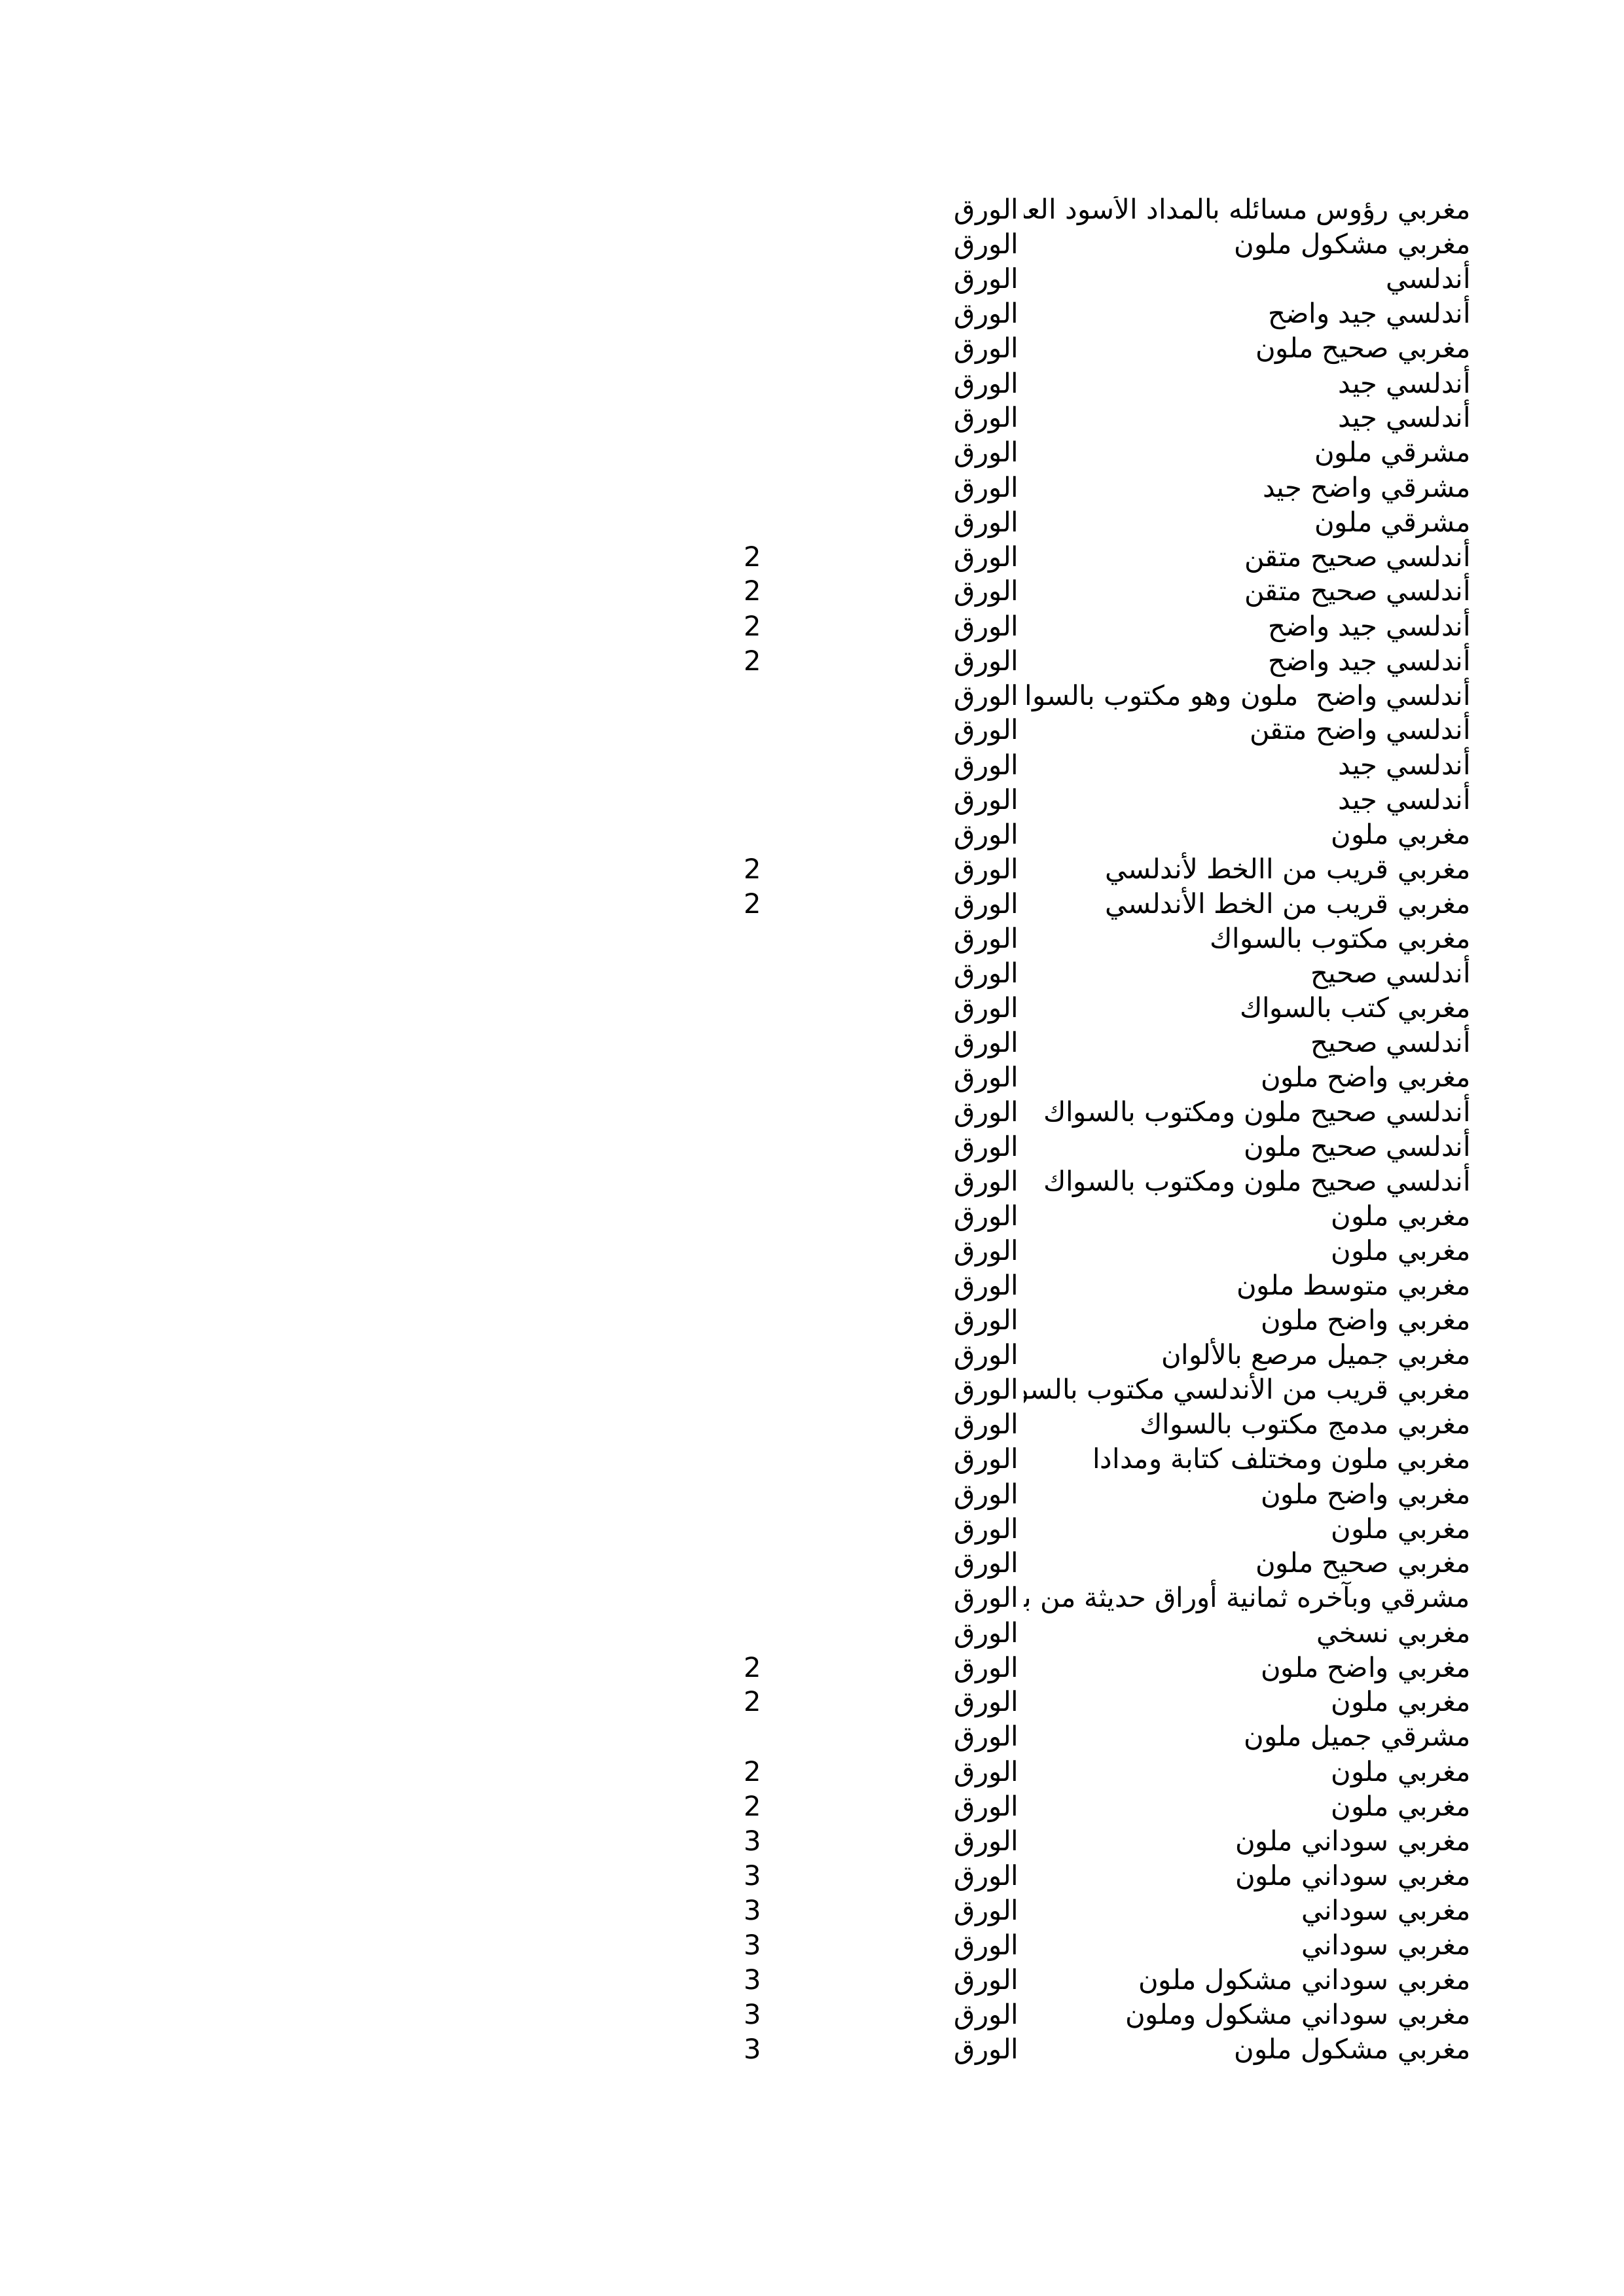 مغربي رؤوس مسائله بالمداد الأسود الورق
مغربي مشكول ملون الورق
أندلسي الورق
أندلسي جيد واضح الورق
مغربي صحيح ملون الورق
أندلسي جيد الورق
أندلسي جيد الورق
مشرقي ملون الورق
مشرقي واضح جيد الورق
مشرقي ملون الورق
أندلسي صحيح متقن الورق 2
أندلسي صحيح متقن الورق 2
أندلسي جيد واضح الورق 2
أندلسي جيد واضح الورق 2
أندلسي واضح ملون وهو مكتوب بالسوا الورق
أندلسي واضح متقن الورق
أندلسي جيد الورق
أندلسي جيد الورق
مغربي ملون الورق
مغربي قريب من االخط لأندلسي الورق 2
مغربي قريب من الخط الأندلسي الورق 2
مغربي مكتوب بالسواك الورق
أندلسي صحيح الورق
مغربي كتب بالسواك الورق
أندلسي صحيح الورق
مغربي واضح ملون الورق
أندلسي صحيح ملون ومكتوب بالسواك الورق
أندلسي صحيح ملون الورق
أندلسي صحيح ملون ومكتوب بالسواك الورق
مغربي ملون الورق
مغربي ملون الورق
مغربي متوسط ملون الورق
مغربي واضح ملون الورق
مغربي جميل مرصع بالألوان الورق
مغربي قريب من الأندلسي مكتوب بالسو الورق
مغربي مدمج مكتوب بالسواك الورق
مغربي ملون ومختلف كتابة ومدادا الورق
مغربي واضح ملون الورق
مغربي ملون الورق
مغربي صحيح ملون الورق
مشرقي وبآخره ثمانية أوراق حديثة من الورق
مغربي نسخي الورق
مغربي واضح ملون الورق 2
مغربي ملون الورق 2
مشرقي جميل ملون الورق
مغربي ملون الورق 2
مغربي ملون الورق 2
مغربي سوداني ملون الورق 3
مغربي سوداني ملون الورق 3
مغربي سوداني الورق 3
مغربي سوداني الورق 3
مغربي سوداني مشكول ملون الورق 3
مغربي سوداني مشكول وملون الورق 3
مغربي مشكول ملون الورق 3